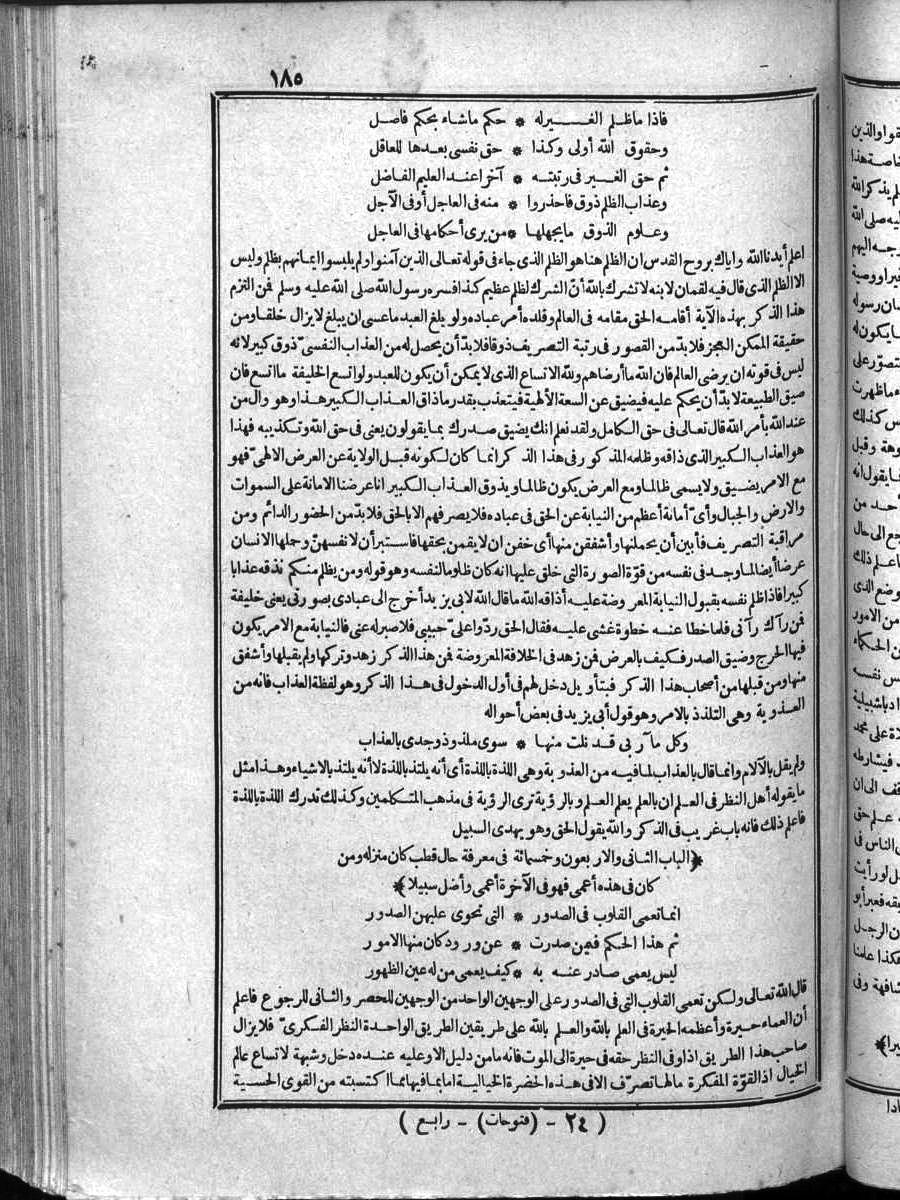 ١٨٥
فاذا ما ظلم الغير له * حكم ما شاء بحكم فاصل
وحقوق الله أولى وكذا * حق نفسى بعدها للعاقل
ثم حق الغير فى رتبته * آخرا عند العليم الفاضل
وعذاب الظلم ذوق فاحذروا * منه فى العاجل أو فى الآجل
وعلوم الذوق ما يجهلها * من يرى أحكامها فى العاجل
اعلم أيدنا الله واياك بروح القدس ان الظلم هنا هو الظلم الذى جاء فى قوله تعالى الذين آمنوا ولم يلبسوا ايمانهم بظلم وليس
الا الظلم الذى قال فيه لقمان لابنه لا تشرك بالله أنّ الشرك لظلم عظيم كذا فسره رسول الله صلى الله عليه وسلم فمن التزم
هذا الذكر بهذه الآية أقامه الحق مقامه فى العالم وقلده أمر عباده ولو بلغ العبد ما عسى ان يبلغ لا يزال خلقا ومن
حقيقة الممكن العجز فلا بدّ من القصور فى رتبة التصريف ذوقا فلا بدّ أن يحصل له من العذاب النفسى ذوق كبير لانه
ليس فى قوته ان يرضى العالم فان الله ما أرضاهم ولله الاتساع الذى لا يمكن أن يكون للعبد ولو اتسع الخليفة ما اتسع فان
ضيق الطبيعة لا بدّ أن يحكم عليه فيضيق عن السعة الالهية فيتعذب بقدر ما ذاق العذاب الكبير هذا وهو وال من
عند الله بأمر الله قال تعالى فى حق الكامل ولقد نعلم انك يضيق صدرك بما يقولون يعنى فى حق الله وتكذيبه فهذا
هو العذاب الكبير الذى ذاقه وظلمه المذكور فى هذا الذكر انما كان لكونه قبل الولاية عن العرض الالهىّ فهو
مع الامر يضيق ولا يسمى ظالما ومع العرض يكون ظالما ويذوق العذاب الكبير انا عرضنا الامانة على السموات
والارض والجبال وأىّ أمانة أعظم من النيابة عن الحق فى عباده فلا يصرفهم الا بالحق فلا بدّ من الحضور الدائم ومن
مراقبة التصريف فأبين أن يحملنها وأشفقن منها أى خفن ان لا يقمن بحقها فاستبرأن لانفسهنّ وحملها الانسان
عرضا أيضا لما وجد فى نفسه من قوّة الصورة التى خلق عليها انه كان ظلوما لنفسه وهو قوله ومن يظلم منكم نذقه عذابا
كبيرا فاذا ظلم نفسه بقبول النيابة المعروضة عليه أذاقه الله ما قال الله لابى يزيد أخرج الى عبادى بصورتى يعنى خليفة
فمن رآك رآنى فلما خطا عنه خطوة غشى عليه فقال الحق ردّوا علىّ حبيبى فلا صبر له عنى فالنيابة مع الامر يكون
فيها الحرج وضيق الصدر فكيف بالعرض فمن زهد فى الخلافة المعروضة فمن هذا الذكر زهد وتركها ولم يقبلها وأشفق
منها ومن قبلها من أصحاب هذا الذكر فبتأويل دخل لهم فى أول الدخول فى هذا الذكر وهو لفظة العذاب فانه من
العذوبة وهى التلذذ بالامر وهو قول أبى يزيد فى بعض أحواله
وكل مآربى قد نلت منها * سوى ملذوذ وجدى بالعذاب
ولم يقل بالآلام وانما قال بالعذاب لما فيه من العذوبة وهى اللذة باللذة أى أنه يلتذ باللذة لا أنه يلتذ بالاشياء وهذا مثل
ما يقوله أهل النظر فى العلم ان بالعلم يعلم العلم وبالرؤية ترى الرؤية فى مذهب المتكلمين وكذلك تدرك اللذة باللذة
فاعلم ذلك فانه باب غريب فى الذكر والله يقول الحق وهو يهدى السبيل
﴿الباب الثانى والاربعون وخمسمائة فى معرفة حال قطب كان منزله ومن
كان فى هذه أعمى فهو فى الآخرة أعمى وأضل سبيلا﴾
انما تعمى القلوب فى الصدور * التى تحوى عليهن الصدور
ثم هذا الحكم فيمن صدرت * عن ورود كان منها الامور
ليس يعمى صادر عنه به * كيف يعمى من له عين الظهور
قال الله تعالى ولكن تعمى القلوب التى فى الصدور على الوجهين الواحد من الوجهين للحصر والثانى للرجوع فاعلم
أن العماء حيرة وأعظمه الحيرة فى العلم بالله والعلم بالله على طريقين الطريق الواحدة النظر الفكرىّ فلا يزال
صاحب هذا الطريق اذا وفى النظر حقه فى حيرة الى الموت فانه ما من دليل الا وعليه عنده دخل وشبهة لاتساع عالم
الخيال اذ القوّة المفكرة ما لها تصرّف الا فى هذه الحضرة الخيالية اما بما فيها مما اكتسبته من القوى الحسية
( ٢٤ - (فتوحات) - رابع )